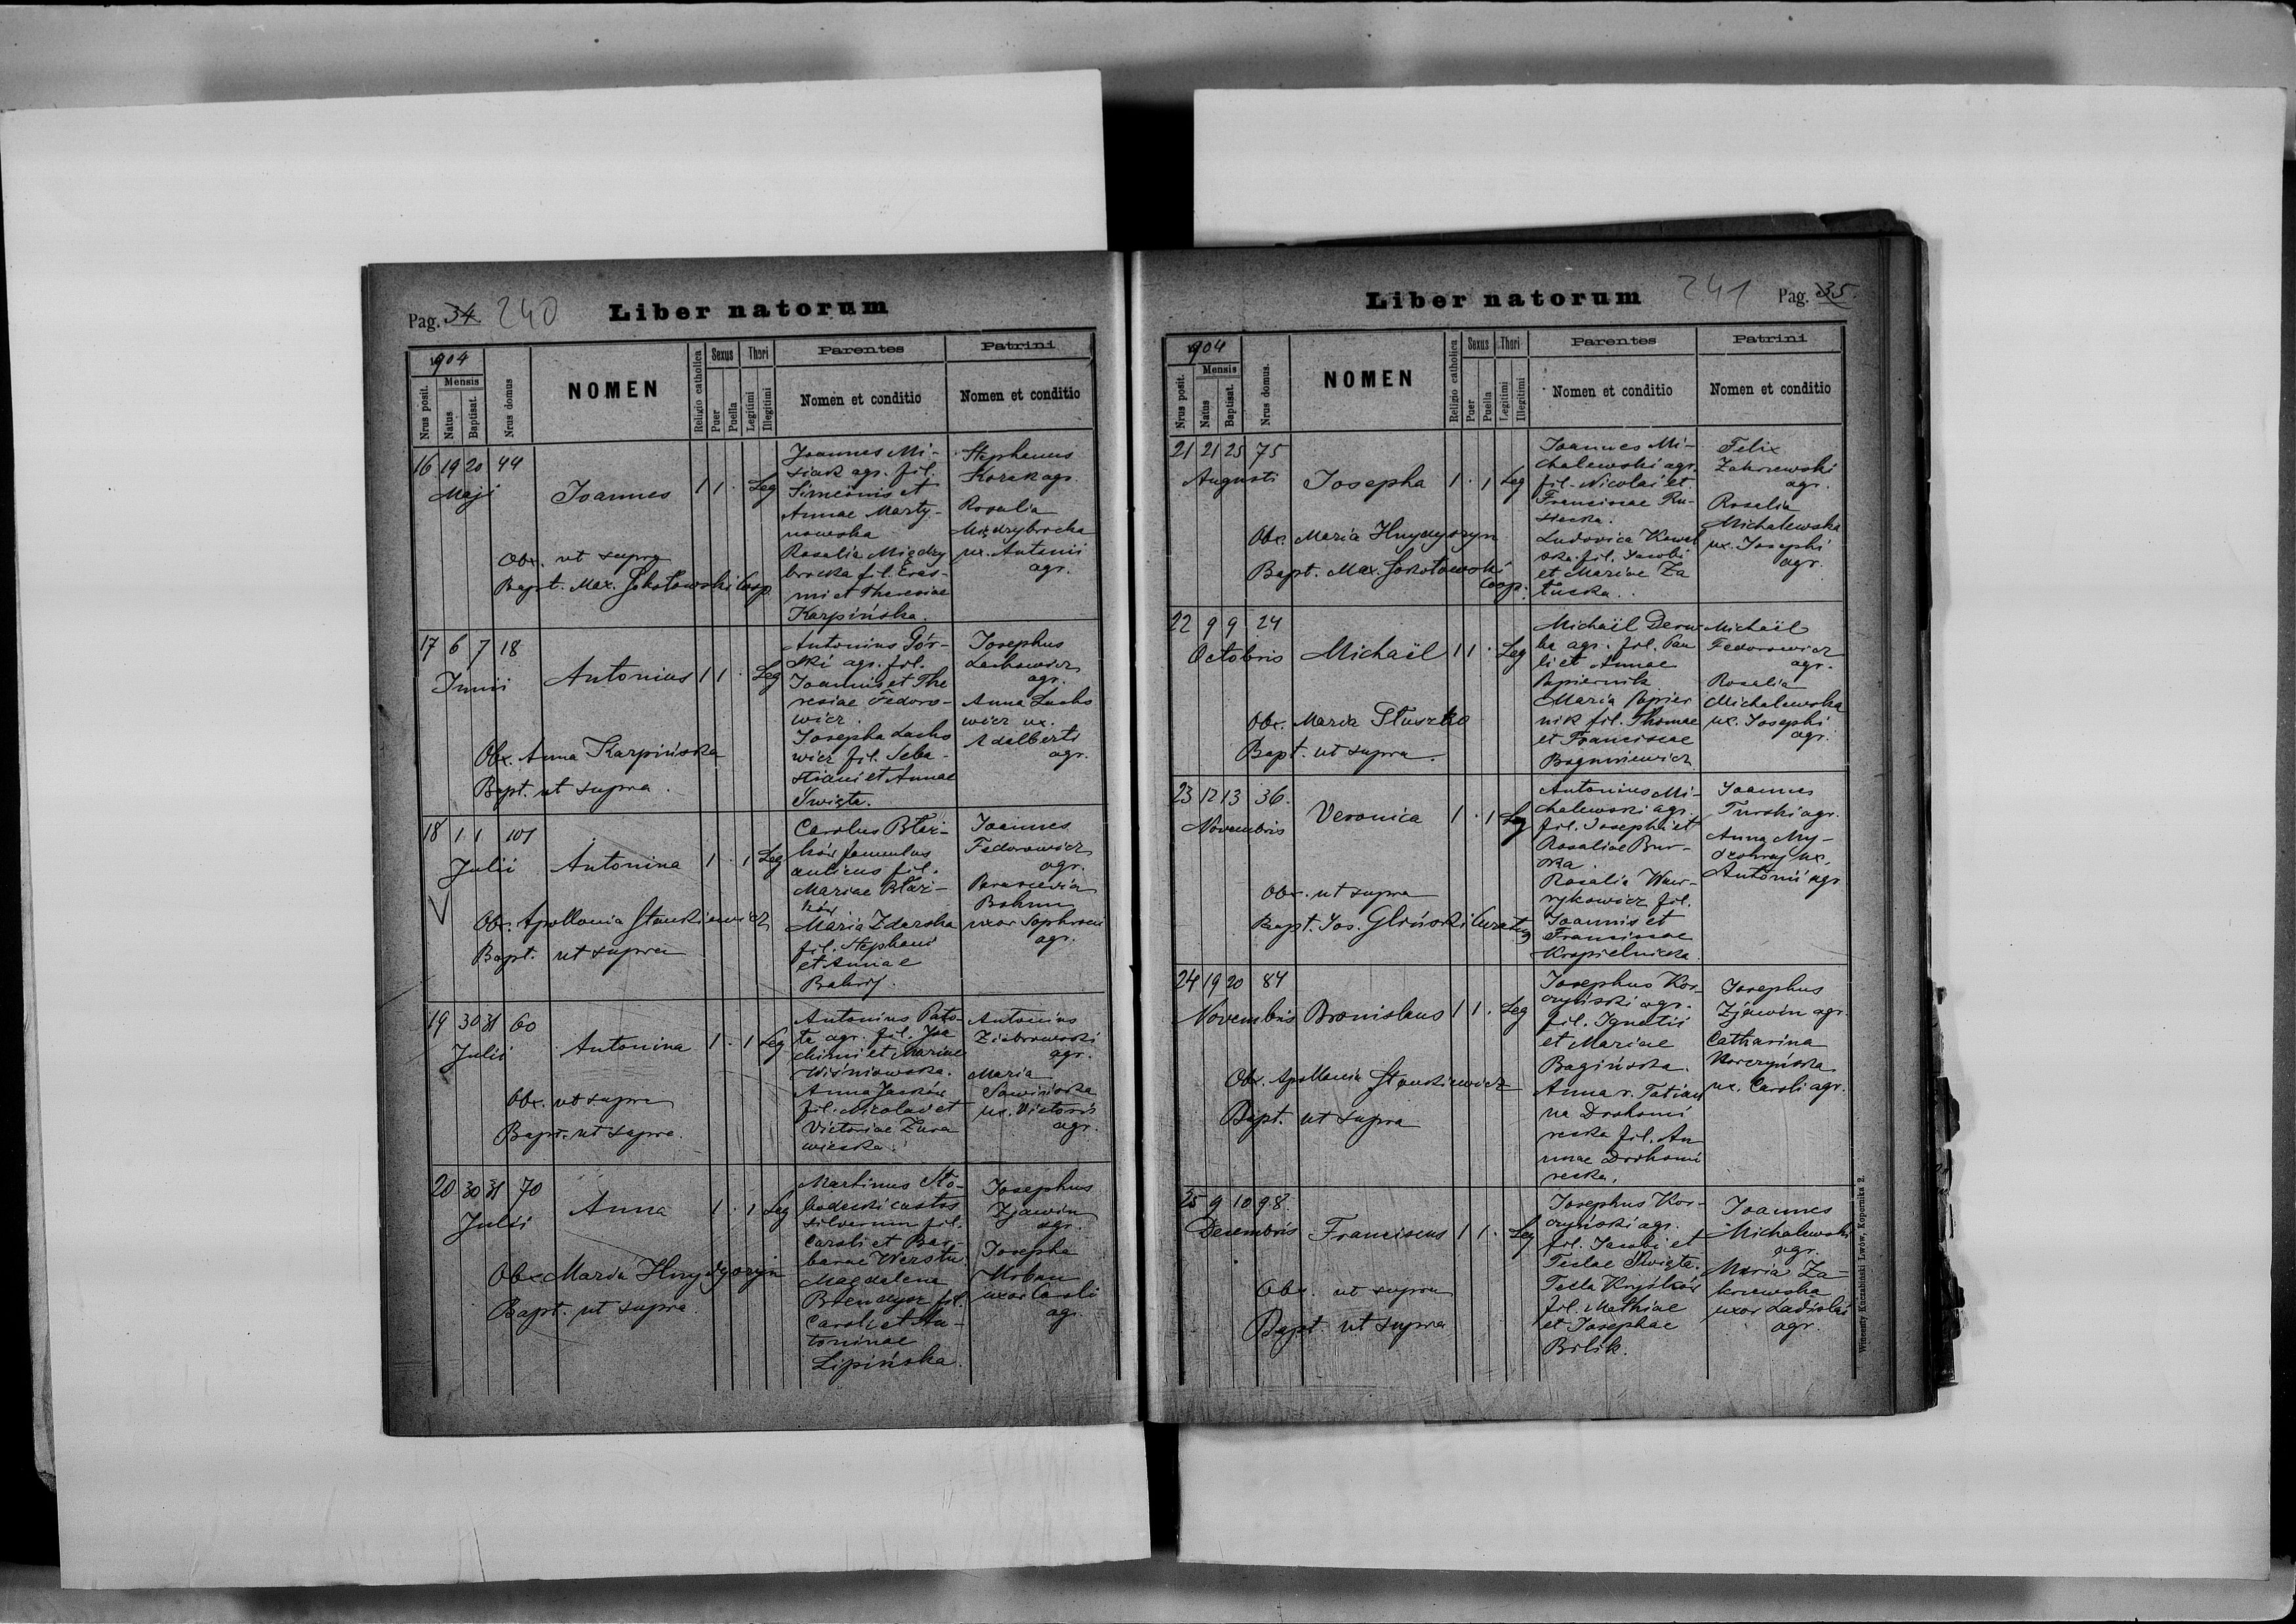 Pag. 34. 240 Liber natorum
1904
Nrus posit.
Mensis
Natus
Baptisat.
Nrus domus
NOMEN
Religio catholica
Sexus
Puer
Puella
Thori
Legitimi
Illegitimi
Parentes
Nomen et conditio
Patrini
Nomen et conditio
16 19 20 44
Maji
Joannes 1 1 . Leg
Obx. ut supra
Bapt. Max. Sokołowski Coop.
Joannes Mi-
siak agr. fil.
Simeonis et
Annae Marty-
nowska
Rosalia Między
brocka fil. Eras-
mi et Theresiae
Karpińska.
Stephanus
Korak agr.
Rosalia
Międzybrocka
ux. Antonii
agr.
17 6 7 18
Junii
Antonius 1 1 . Leg
Obx. Anna Karpińska
Bapt. ut supra.
Antonius Gór-
ski agr. fil.
Joannis et The
resiae Fedoro-
wicz.
Josepha Lacho
wicz fil. Seba-
stiani et Annae
Święta.
Josephus
Lachowicz
agr.
Anna Lacho
wicz ux.
Adalberti
agr.
18 1 1 101
Julii
Antonina 1 . 1 Leg
Obx. Apollonia Stankiewicz
Bapt. ut supra
Carolus Błaż-
ków famulus
aulicus fil.
Mariae Błaż-
ków
Maria Zdarska
fil. Stephani
et Annae
Bahrij.
Joannes
Fedorowicz
agr.
Parascevia
Bohun
uxor Sophroni
agr.
19 30 31 60
Julii
Antonina 1 . 1 Leg
Obx. ut supra
Bapt. ut supra.
Antonius Pato-
ta agr. fil. Joa
chimi et Mariae
Wiśniowska.
Anna Jasków
fil. Nicolai et
Victoriae Żura
wiecka.
Antonius
Ziobrowski
agr.
Maria
Sawińska
ux. Victoris
agr.
20 30 31 70
Julii
Anna 1 . 1 Leg
Obx. Maria Hnydyszyn
Bapt. ut supra.
Martinus Sło-
bodecki custos
silvarum fil.
Caroli et Bar-
barae Werstu
Magdalena
Brendysz fil.
Caroli et An-
toninae
Lipińska.
Josephus
Zjawin
agr.
Josepha
Urban
uxor Caroli
agr.
Liber natorum 241 Pag. 35.
1904
Nrus posit.
Mensis
Natus
Baptisat.
Nrus domus.
NOMEN
Religio catholica
Sexus
Puer
Puella
Thori
Legitimi
Illegitimi
Parentes
Nomen et conditio
Patrini
Nomen et conditio
21 21 25 75
Augusti
Josepha 1 . 1 Leg
Obx. Maria Hnydyszyn
Bapt. Max. Sokołowski
Coop.
Joannes Mi-
chalewski agr.
fil. Nicolai et
Franciscae Ru-
siecka.
Ludovica Kowal
ska fil. Jacobi
et Mariae Za
łuska.
Felix
Zakrzewski
agr.
Rosalia
Michalewska
ux. Josephi
agr.
22 9 9 24
Octobris
Michaël 1 1 . Leg
Obx. Maria Słuszko
Bapt. ut supra.
Michaël Derw
ka agr. fil. Pau
li et Annae
Papiernik
Maria Papier
nik fil. Thomae
et Franciscae
Bogusiewicz
Michaël
Fedorowicz
agr.
Rosalia
Michalewska
ux. Josephi
agr.
23 12 13 36.
Novembris
Veronica 1 . 1 Leg
Obx. ut supra
Bapt. Jos. Gliński Curatus
Antonius Mi-
chalewski agr.
fil. Josephi et
Rosaliae Bur-
ska.
Rosalia Waw-
rykowicz fil.
Joannis et
Franciscae
Kropielnicka.
Joannes
Turski agr.
Anna My-
dzohraj ux.
Antonii agr.
24 19 20 84
Novembris
Bronislaus 1 1 . Leg
Obx. Apollonia Stankiewicz
Bapt. ut supra
Josephus Kor-
czyński agr.
fil. Ignatii
et Mariae
Bagińska.
Anna v. Tatian
na Drohomi
recka fil. An
nnae Drohomi
recka.
Josephus
Zjawin agr.
Catharina
Korczyńska
ux. Caroli agr.
25 9 10 98.
Decembris
Franciscus 1 1 . Leg
Obx. ut supra
Bapt. ut supra
Josephus Kor-
czyński agr.
fil. Jacobi et
Teclae Święta.
Tecla Kryśków
fil. Mathiae
et Josephae
Bilik.
Joannes
Michalewski
agr.
Maria Za-
krzewska
uxor Ladislai
agr.
Wincenty Kuczabiński Lwów, Kopernika 2.